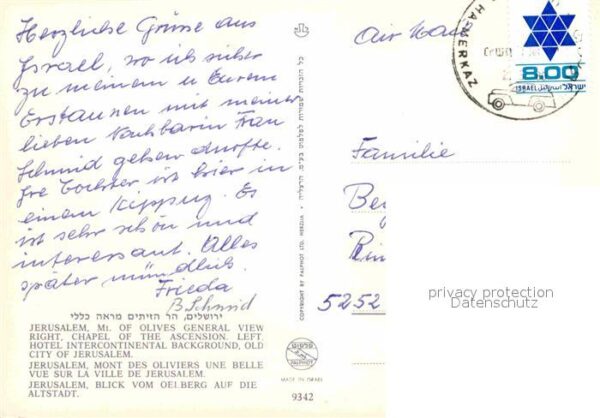 Herzliche Grüsse aus
Israel, wo ich sicher
zu meinem u Eurem
Erstaunen mit meiner
lieben Nachbarin Frau
Schmid gehen durfte.
Ihre Tochter ist hier in
einem Kippuz. Es
ist sehr schön und
interessant. Alles
später mündlich.
Frieda
B. Schmid
ירושלים, הר הזיתים מראה כללי
JERUSALEM, Mt. OF OLIVES GENERAL VIEW
RIGHT, CHAPEL OF THE ASCENSION, LEFT
HOTEL INTERCONTINENTAL BACKGROUND, OLD
CITY OF JERUSALEM.
JERUSALEM, MONT DES OLIVIERS UNE BELLE
VUE SUR LA VILLE DE JERUSALEM.
JERUSALEM, BLICK VOM OELBERG AUF DIE
ALTSTADT.
COPYRIGHT BY PALPHOT LTD. HERZLIA
פלפוט
PALPHOT
MADE IN ISRAEL
9342
Air Mail
HAMERKAZ
8.00
ISRAEL
ישראל
Familie
Be
Rin
5252
privacy protection
Datenschutz